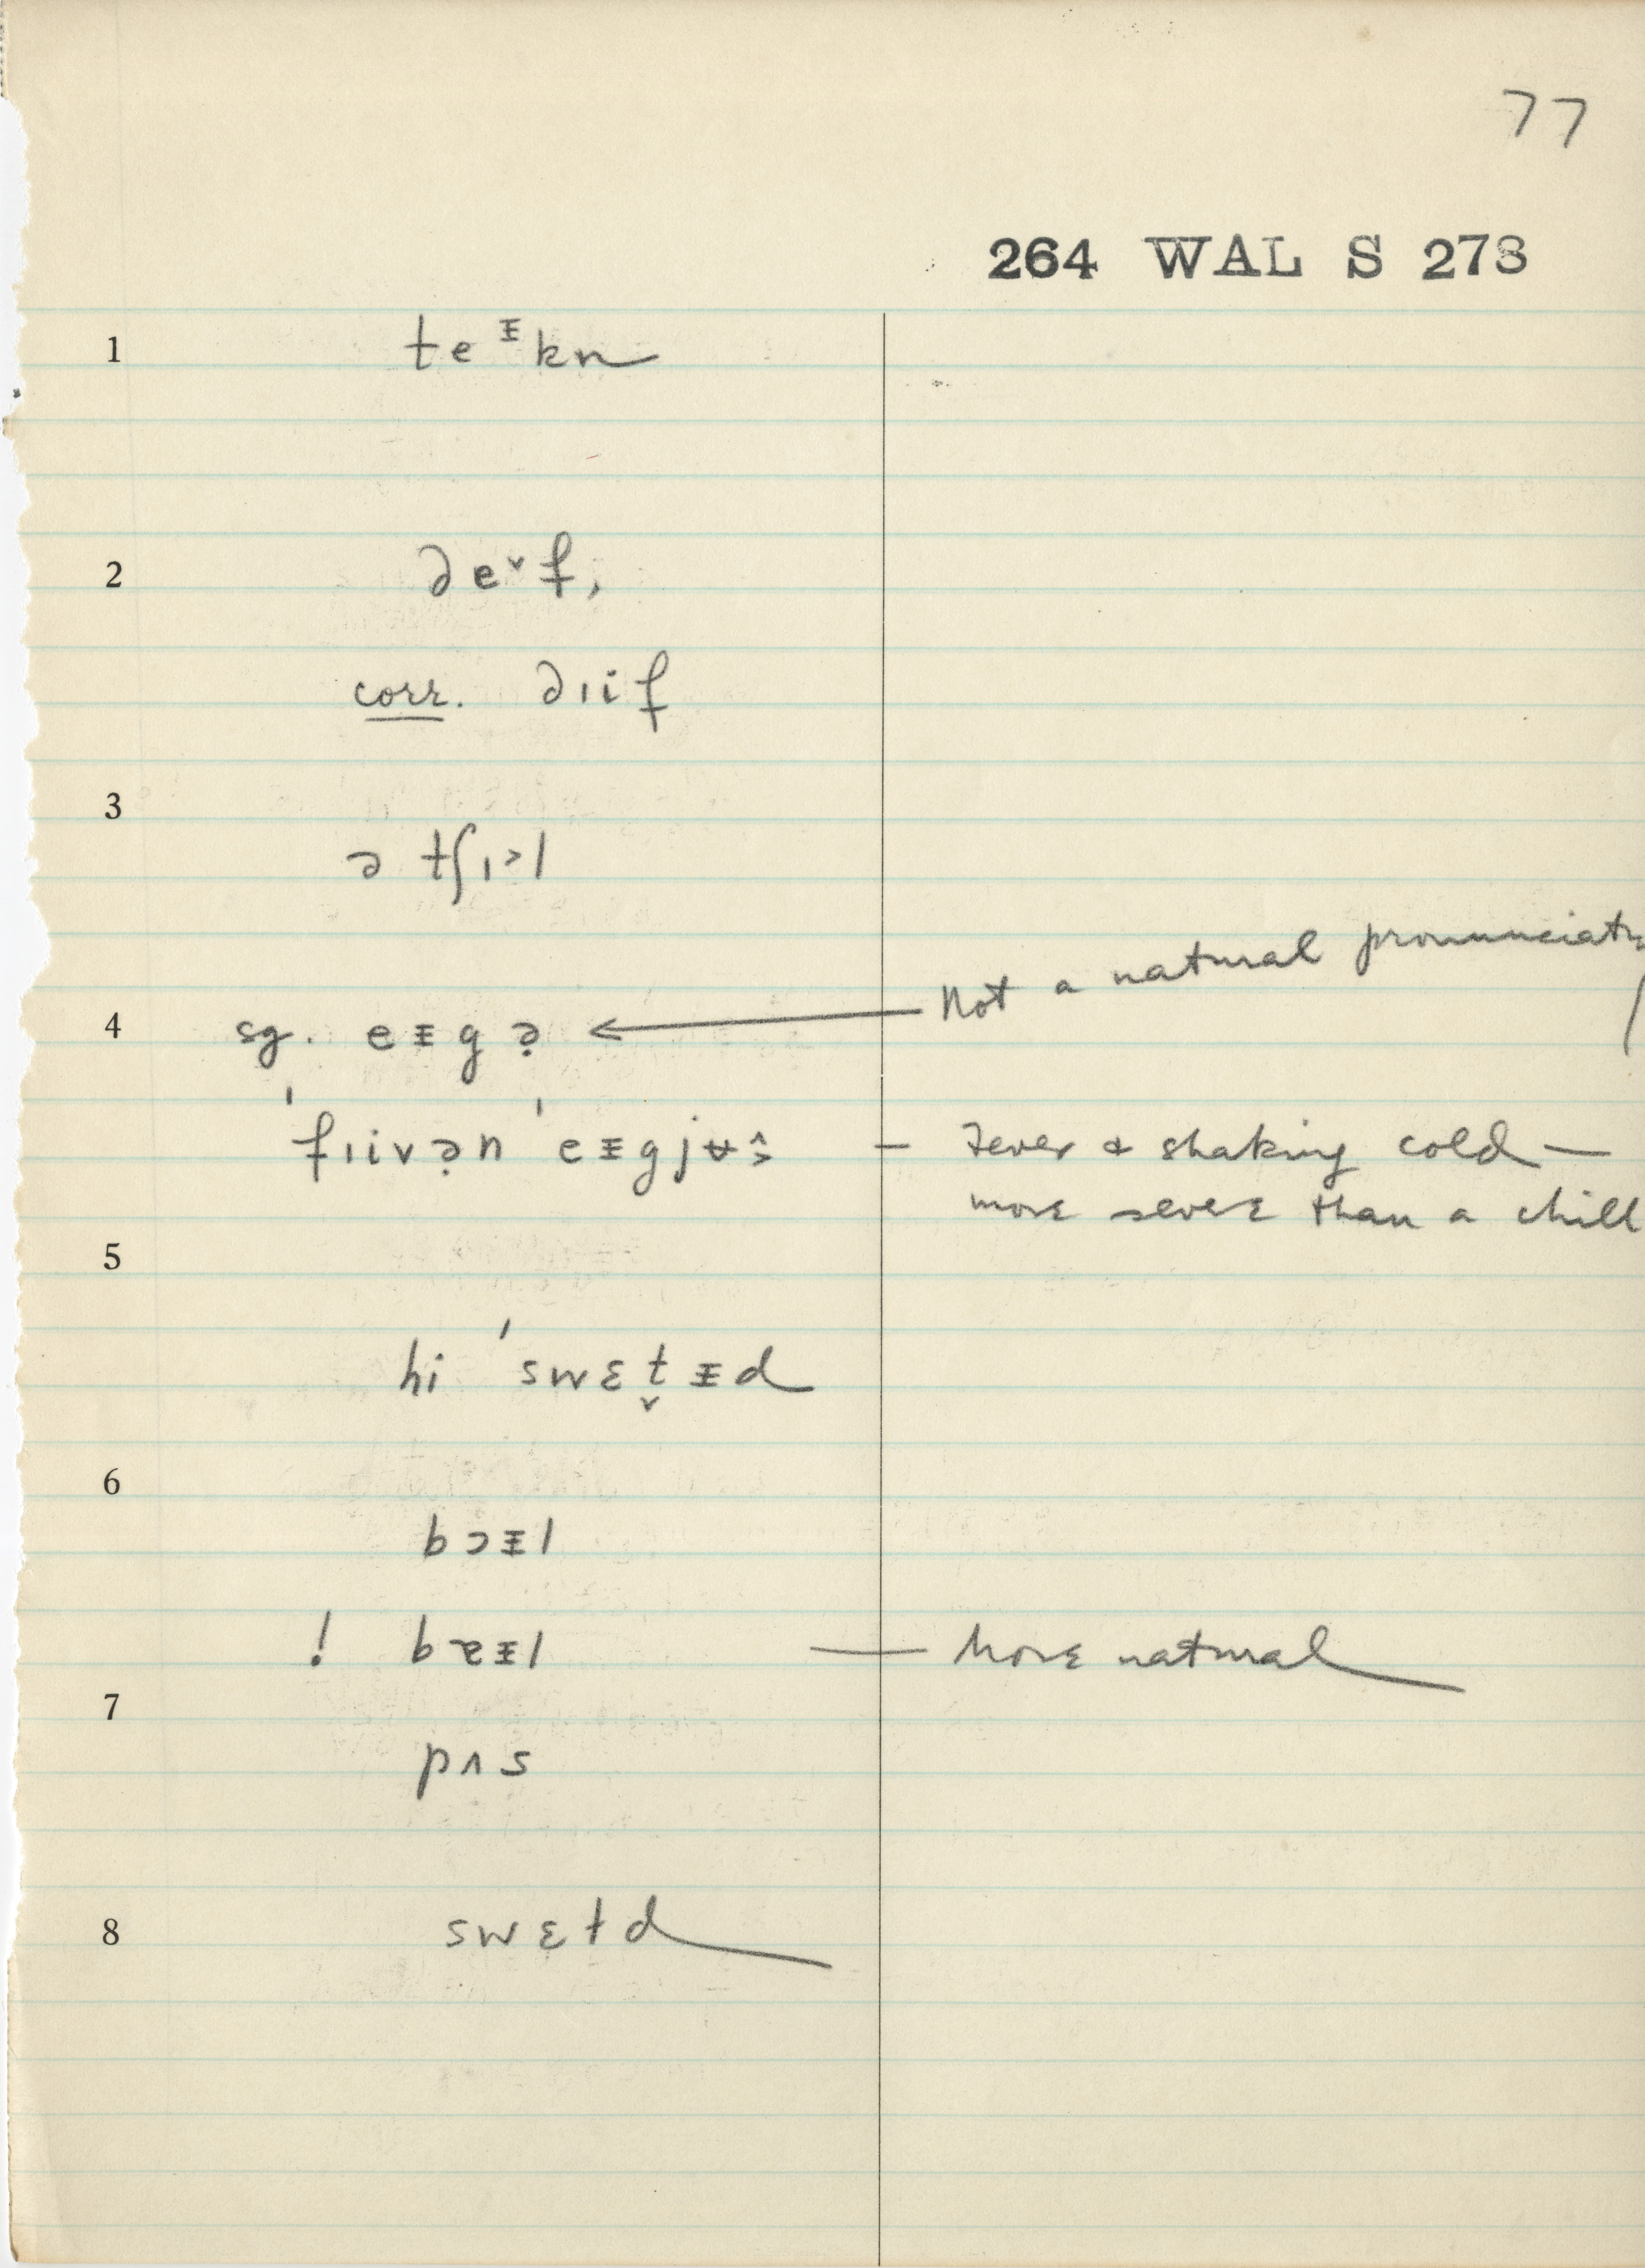 77
264 WAL S 273
1 teᵻkn
2 deᵛf,
corr. dɪif
3 ə tʃɪ˃l
4 sg. eᵻg ə̣ ← Not a natural pronunciatn
ˈfɪivə̣n ˈeᵻgjʉ — Fever & shaking cold —
more severe than a chill
5
hi ˈswɛt̬ᵻd
6
bɔᵻl
! bɐᵻl — More natural
7
pʌs
8 swɛtd